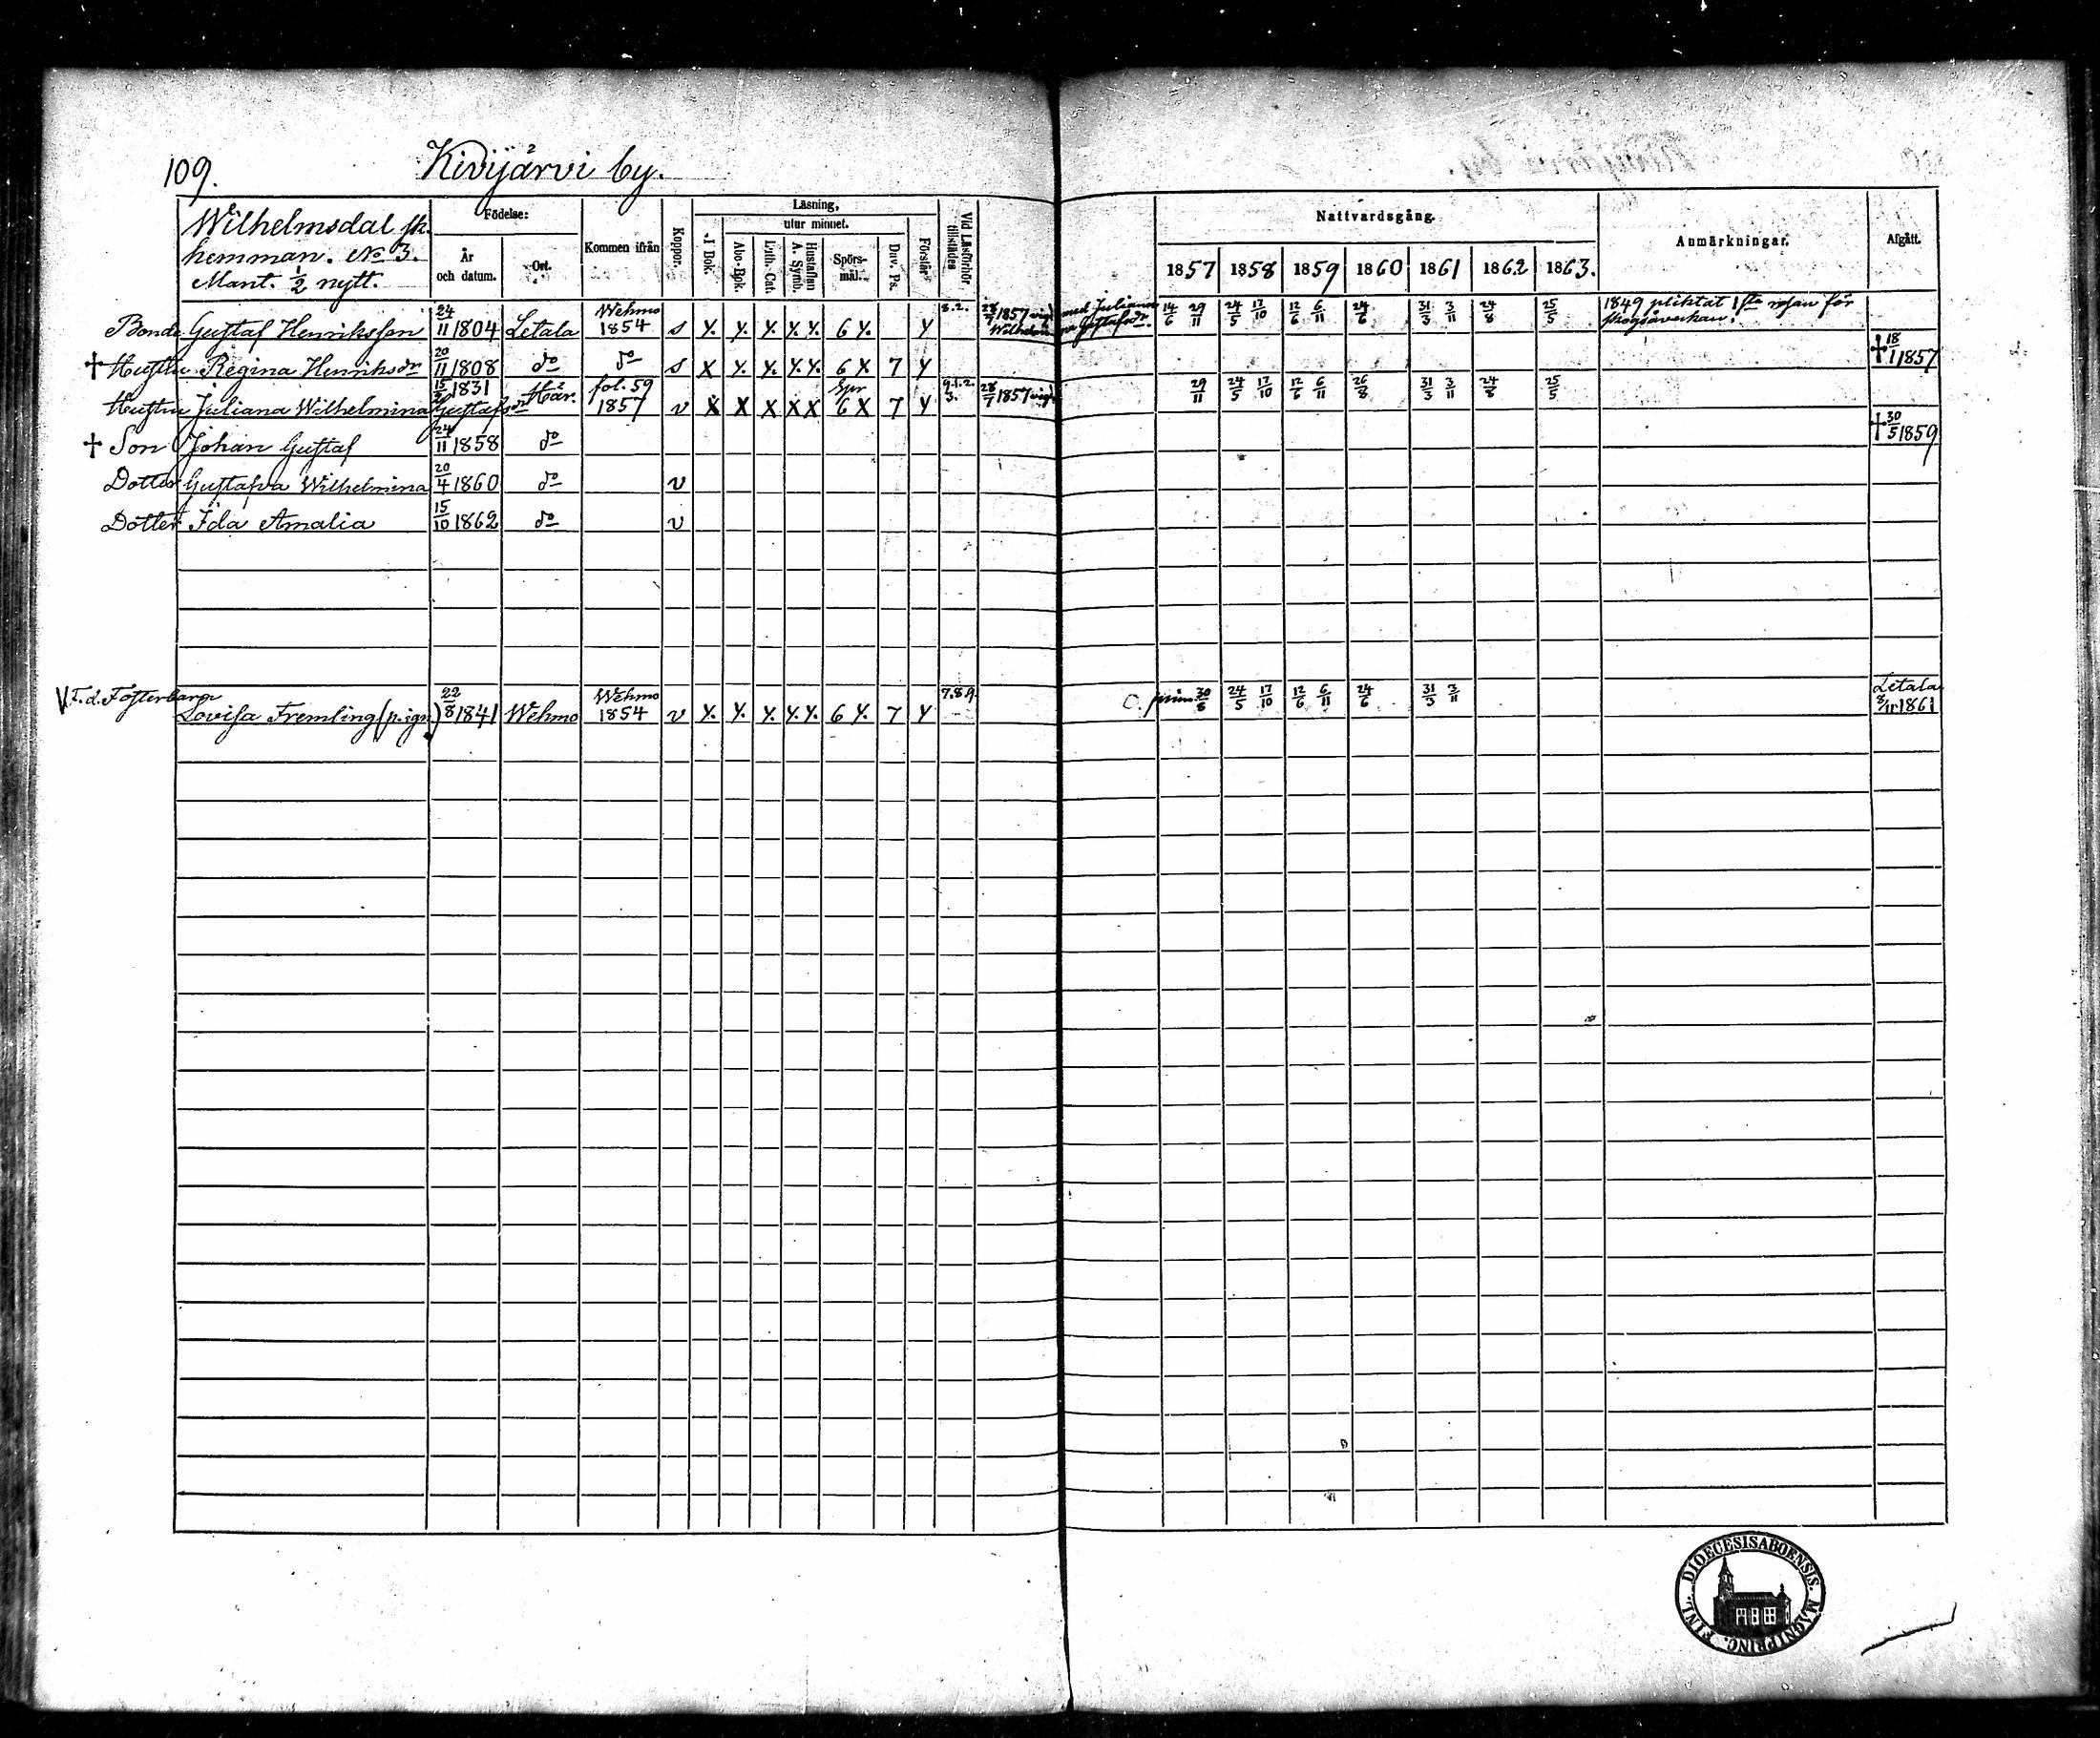 109. Kivijärvi by.
Wilhelmsdal sk.
hemman. No 3.
Mant. 1/2 nytt.
Födelse:
År och datum.
Ort.
Kommen ifrån
Koppor.
Läsning,
I Bok.
utur minnet.
Abc-Bok.
Luth. Cat.
Hustaflan A. Symb.
Spörsmål.
Dav. Ps.
Förstår
Vid Läsförhör tillstädes
Nattvardsgång.
1857 1858 1859 1860 1861 1862 1863.
Anmärkningar.
Afgått.
Bonde Gustaf Henriksson 24/11 1804 Letala Wehmo 1854 s y. y. y. y. y. 6 y. y 8.2. 28/7 1857 vigd med Juliana Wilhelmina Gustafsdr. 14/6 29/11 24/5 17/10 12/6 6/11 24/6 31/3 3/11 24/8 25/5 1849 pliktat 1sta för
† Hustru Regina Henriksdr 20/11 1808 do do s x y. y. y. y. 6 x 7 y † 18/1 1857
Hustru Juliana Wilhelmina Gustafsdr 1831 fol. 59 1857 v x x x x x 6 x 7 y 9.1.2.3. 28/7 1857 vigd 29/11 24/5 17/10 12/6 6/11 26/8 31/3 3/11 24/8 25/5
† Son Johan Gustaf 24/11 1858 do † 30/5 1859
Dotter Gustafva Wilhelmina 20/4 1860 do v
Dotter Ida Amalia 15/10 1862 do v
F.d. Fosterbarn
Lovisa Fremling (pigr) 22/8 1841 Wehmo Wehmo 1854 v y. y. y. y. y. 6 y. 7 y 7.8.9. 30/6 24/5 17/10 12/6 6/11 24/6 31/3 3/11 Letala 8/11 1861
DIOECESIS ABOENSIS. MAGNI PRINC. FINL.